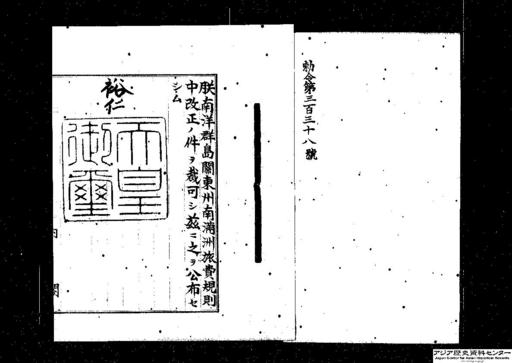 勅令第三百三十八號
朕南洋群島關東州南滿洲旅費規則
中改正ノ件ヲ裁可シ茲ニ之ヲ公布セ
シム
裕仁
天皇
御璽
アジア歴史資料センター
Japan Center for Asian Historical Records